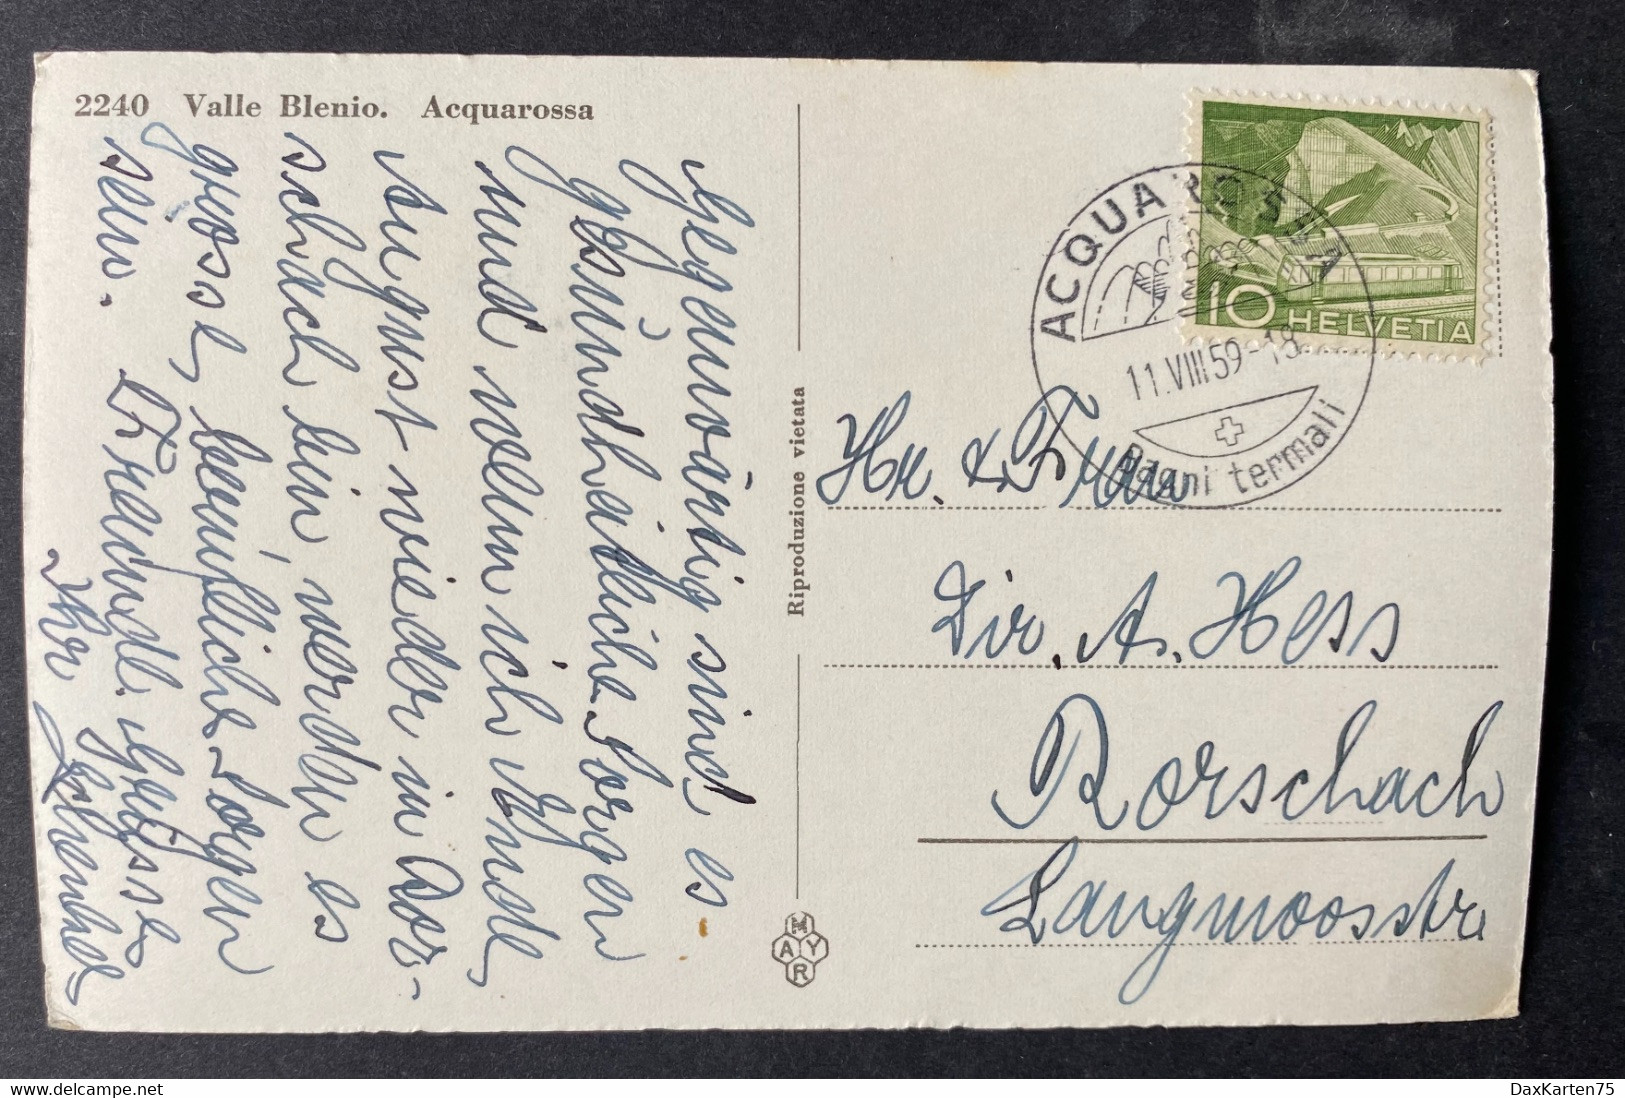 2240 Valle Blenio. Acquarossa
Gegenwärtig sind es
gesundheitliche Sorgen
und wenn ich Ende
August wieder in Ror-
schach bin, werden es
grosse, berufliche Sorgen
sein. Freundl. Grüsse
Ihr
Riproduzione vietata
MAYR
ACQUAROSSA
11.VIII.59-18
Bagni termali
10 HELVETIA
Hr. & Frau
Dir. A. Hess
Rorschach
Langmoosstr
DaxKarten75